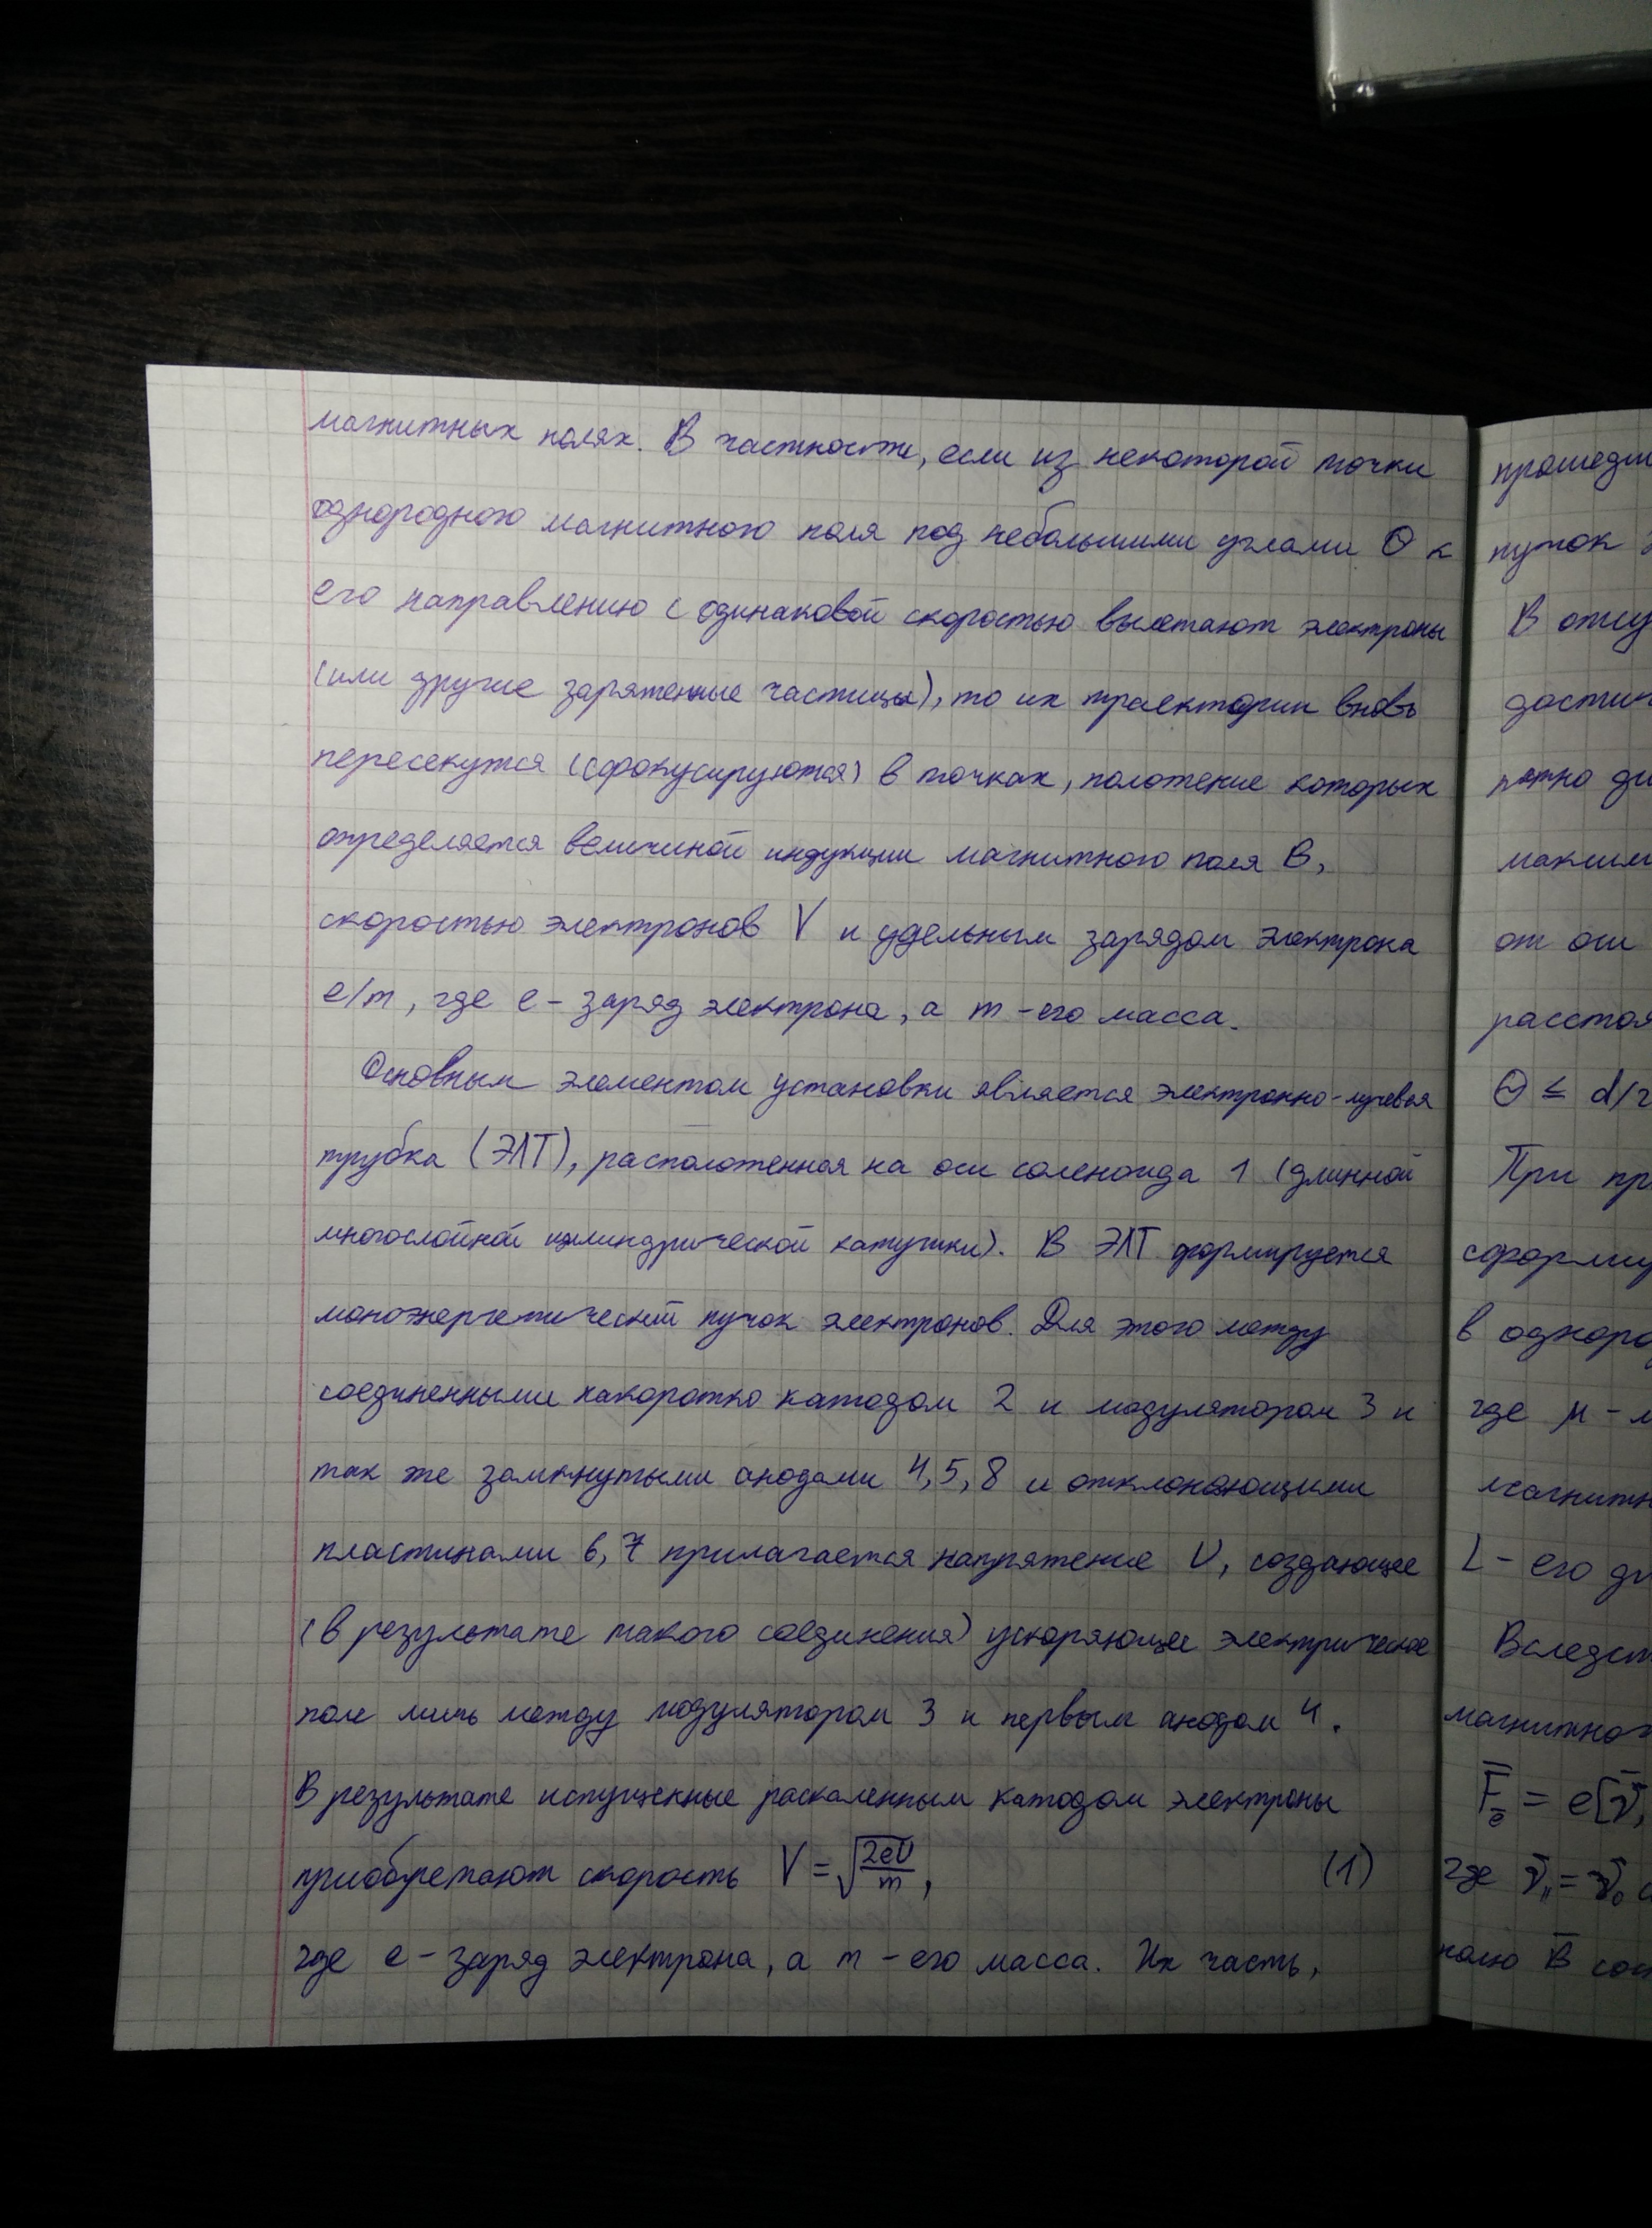 магнитных полях. В частности, если из некоторой точки
однородного магнитного поля под небольшими углами Θ к
его направлению с одинаковой скоростью вылетают электроны
(или другие заряженные частицы), то их траектории вновь
пересекутся (сфокусируются) в точках, положение которых
определяется величиной индукции магнитного поля B,
скоростью электронов V и удельным зарядом электрона
e/m, где e - заряд электрона, а m - его масса.
Основным элементом установки является электронно-лучевая
трубка (ЭЛТ), расположенная на оси соленоида 1 (длинной
многослойной цилиндрической катушки). В ЭЛТ формируется
моноэнергетический пучок электронов. Для этого между
соединенными накоротко катодом 2 и модулятором 3 и
так же замкнутыми анодами 4, 5, 8 и отклоняющими
пластинами 6, 7 прилагается напряжение U, создающее
(в результате такого соединения) ускоряющее электрическое
поле лишь между модулятором 3 и первым анодом 4.
В результате испущенные раскаленным катодом электроны
приобретают скорость V = √(2eU/m), (1)
где e - заряд электрона, а m - его масса. Их часть,
прошедш
пучок
В отсу
достиг
пятно ди
максим
от оси
расстоя
Θ ≤ d/2
При пр
сформиу
в одноро
где μ - м
магнитн
L - его дл
Вследст
магнитног
F̄ē = e[v̄,
где v̄ₙ = v̄₀ c
полю B̄ сос